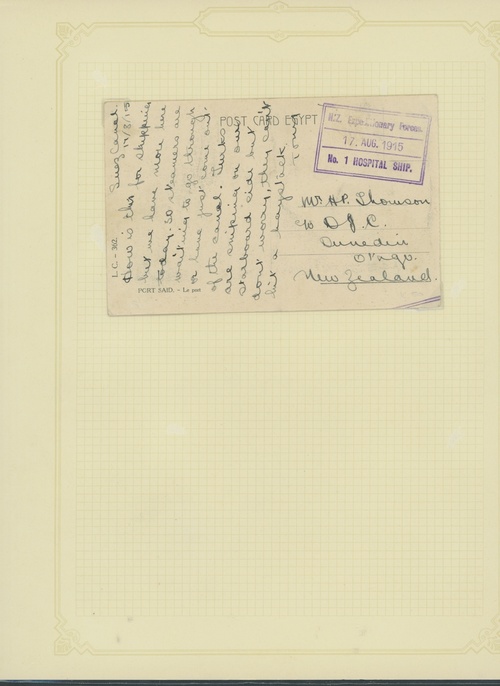 POST CARD EGYPT
N.Z. Expeditionary Forces.
17. AUG. 1915
No. 1 HOSPITAL SHIP.
Suez Canal.
17/8/15
How is this for shipping
but we have more here
today, 50 steamers are
waiting to go through
& have just come out
of the canal. Turks
are sniping on our
starboard side but
dont worry, they can't
hit a haystack.
Tony
Mr. H.P. Thomson
c/o D.I.C.
Dunedin
Otago.
New Zealand.
L. C. - 362.
PORT SAID. - Le port